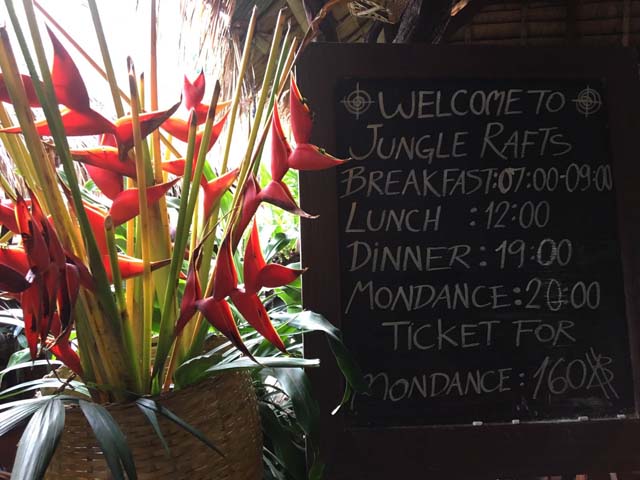 WELCOME TO
JUNGLE RAFTS
BREAKFAST: 07:00-09:00
LUNCH : 12:00
DINNER : 19:00
MONDANCE : 20:00
TICKET FOR
MONDANCE : 160฿